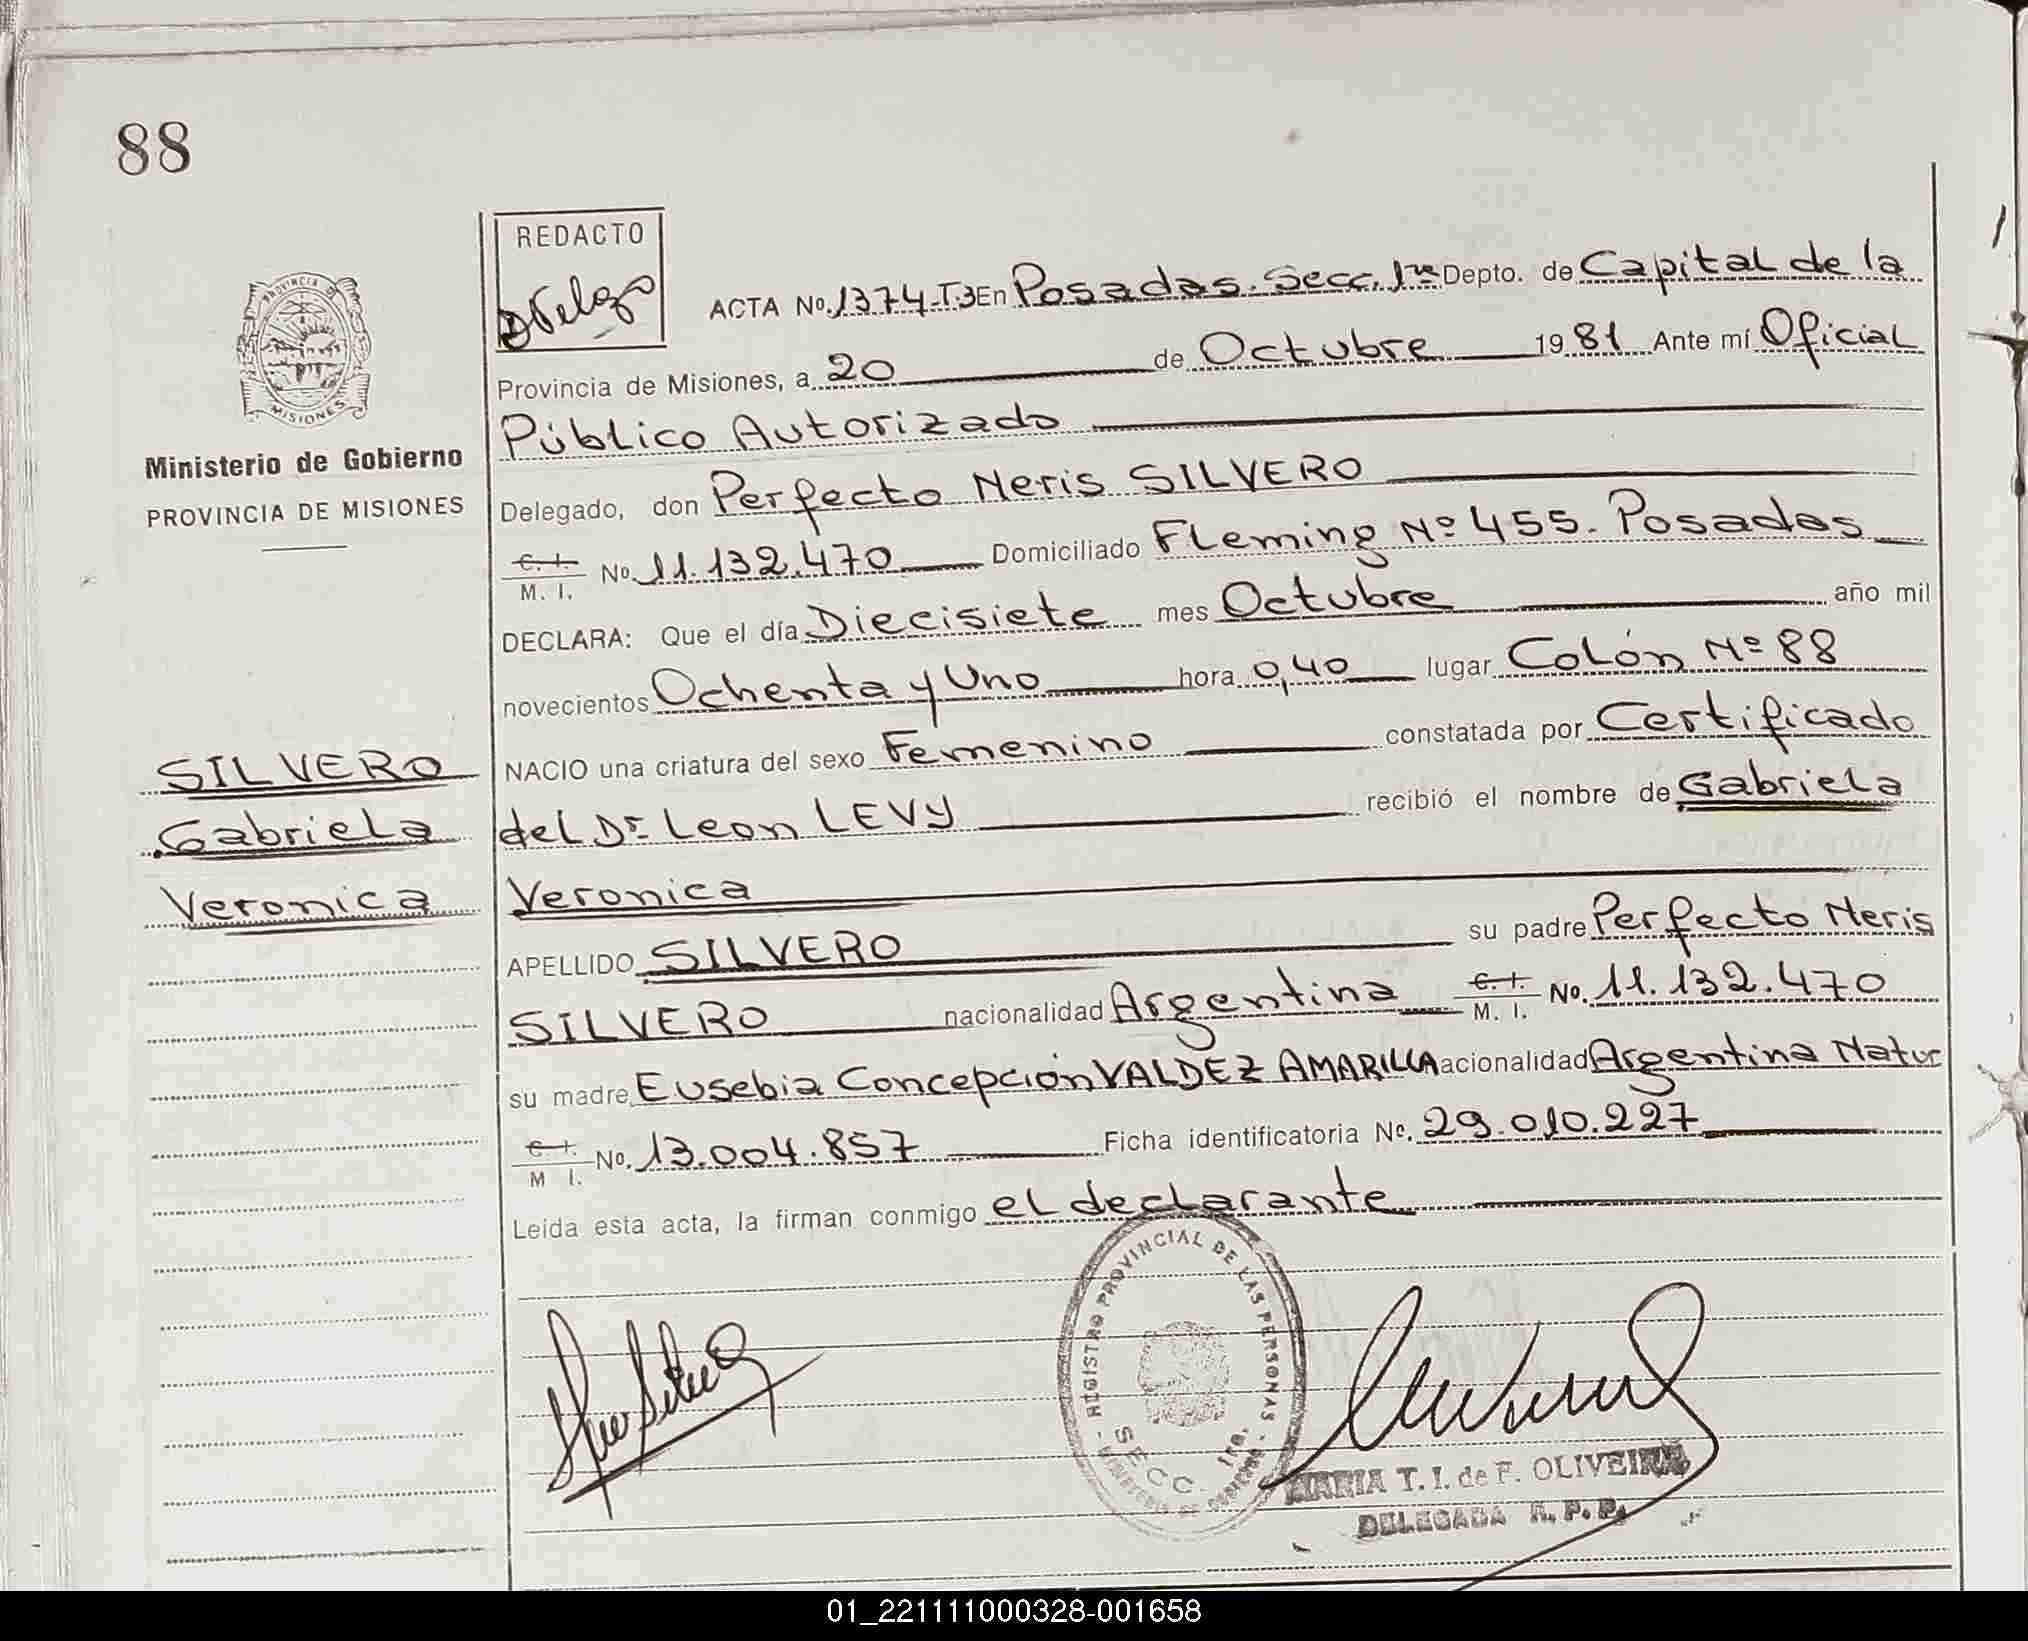 88
REDACTO
PROVINCIA DE
MISIONES
Ministerio de Gobierno
PROVINCIA DE MISIONES
ACTA No. 1374-T.3 En Posadas. Secc. 1ra Depto. de Capital de la
Provincia de Misiones, a 20 de Octubre 1981 Ante mí Oficial
Público Autorizado
Delegado, don Perfecto Neris SILVERO
C. I. / M. I. No. 11.132.470 Domiciliado Fleming Nº 455. Posadas
DECLARA: Que el día Diecisiete mes Octubre año mil
novecientos Ochenta y Uno hora 0,40 lugar Colón Nº 88
NACIO una criatura del sexo Femenino constatada por Certificado
del Dr Leon LEVY recibió el nombre de Gabriela
Veronica
APELLIDO SILVERO su padre Perfecto Neris
SILVERO nacionalidad Argentina C. I. / M. I. No. 11.132.470
su madre Eusebia Concepción VALDEZ AMARILLA nacionalidad Argentina Natur
C. I. / M. I. No. 13.004.857 Ficha identificatoria No. 29.010.227
Leída esta acta, la firman conmigo el declarante
SILVERO
Gabriela
Veronica
REGISTRO PROVINCIAL DE LAS PERSONAS
SECC. 1ra.
MARIA T. I. de F. OLIVEIRA
DELEGADA R. P. P.
01_221111000328-001658